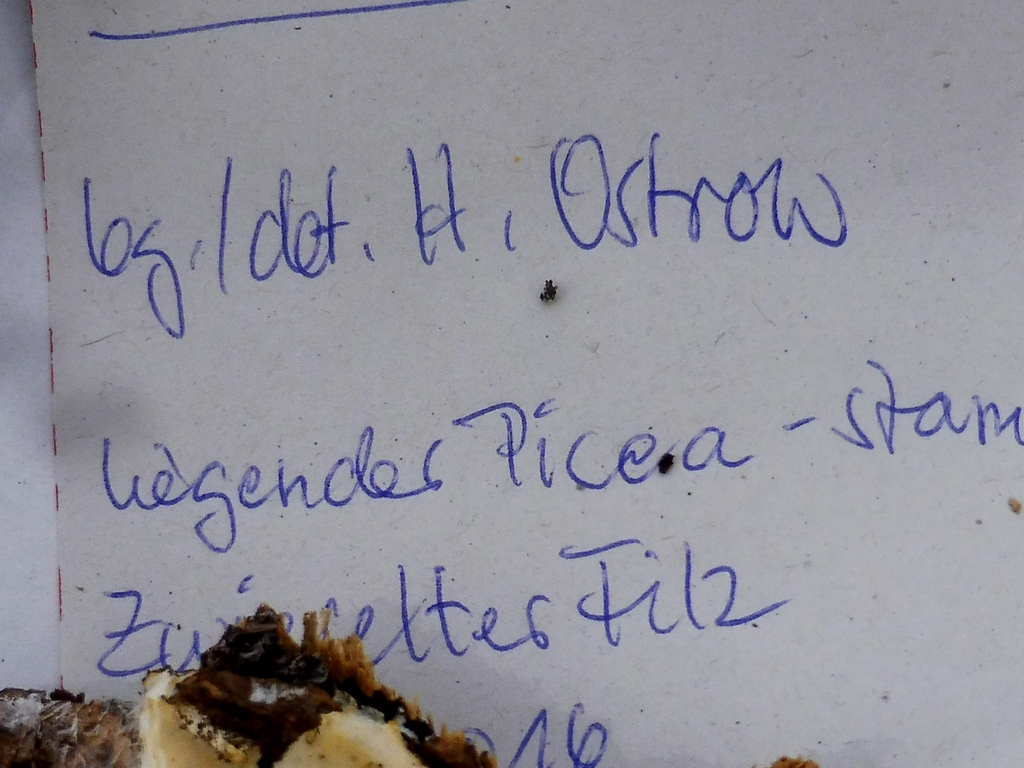 leg./det. H. Ostrow
liegender Picea-stam
Filz
16